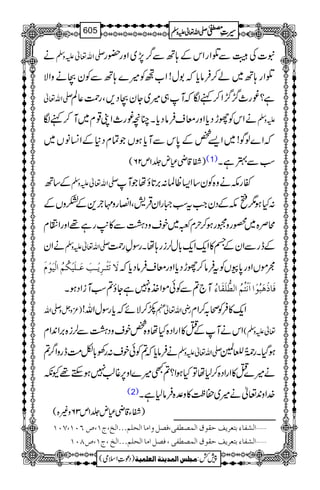 سیرتِ مصطفی صلی اللہ تعالیٰ علیہ وسلم 605
نبوت کی ہیبت سے تلوار اس کے ہاتھ سے گر پڑی اور حضور صلی اللہ تعالیٰ علیہ وسلم نے
تلوار ہاتھ میں لے کر فرمایا کہ بول! اب تجھ کو میرے ہاتھ سے کون بچانے والا
ہے؟ غورث گڑگڑا کر کہنے لگا کہ آپ ہی میری جان بچا دیں، رحمتِ عالم صلی اللہ تعالیٰ
علیہ وسلم نے اس کو چھوڑ دیا اور معاف فرما دیا۔ چنانچہ غورث اپنی قوم میں آ کر کہنے لگا
کہ اے لوگو! میں ایسے شخص کے پاس سے آیا ہوں جو تمام دنیا کے انسانوں میں
سب سے بہتر ہے۔ (1) (شفاء قاضی عیاض جلد۱ ص۶۲)
کفار مکہ نے وہ کون سا ایسا ظالمانہ برتاؤ تھا جو آپ صلی اللہ تعالیٰ علیہ وسلم کے ساتھ
نہ کیا ہو مگر فتح مکہ کے دن جب یہ سب جباران قریش، انصار و مہاجرین کے لشکروں کے
محاصرہ میں محصور و مجبور ہو کر حرم کعبہ میں خوف و دہشت سے کانپ رہے تھے اور انتقام
کے ڈر سے ان کے جسم کا ایک ایک بال لرز رہا تھا۔ رسول رحمت صلی اللہ تعالیٰ علیہ وسلم نے ان
مجرموں اور پاپیوں کو یہ فرما کر چھوڑ دیا اور معاف فرما دیا کہ لَا تَثْرِیْبَ عَلَیْکُمُ الْیَوْمَ
فَاذْھَبُوْا اَنْتُمُ الطُّلَقَآءُ آج تم سے کوئی مواخذہ نہیں ہے جاؤ تم سب آزاد ہو۔
ایک کافر کو صحابہ کرام رضی اللہ تعالیٰ عنہم پکڑ کر لائے کہ یا رسول اللہ! (عزوجل و صلی اللہ
تعالیٰ علیہ وسلم) اس نے آپ کے قتل کا ارادہ کیا تھا وہ شخص خوف و دہشت سے لرزہ براندام
ہو گیا۔ رحمۃ للعالمین صلی اللہ تعالیٰ علیہ وسلم نے فرمایا کہ تم کوئی خوف نہ رکھو بالکل مت ڈرو اگر تم
نے میرے قتل کا ارادہ کیا تھا تو کیا ہوا؟ تم کبھی میرے اوپر غالب نہیں ہو سکتے تھے کیونکہ
خداوند تعالیٰ نے میری حفاظت کا وعدہ فرما لیا ہے۔ (2)
(شفاء قاضی عیاض جلد۱ ص۶۳ وغیرہ)
الشفاء بتعریف حقوق المصطفی، فصل واما الحلم...الخ، ج۱، ص۱۰۶،۱۰۷
الشفاء بتعریف حقوق المصطفی، فصل اما الحلم...الخ، ج۱، ص۱۰۸
پیش کش: مجلس المدینة العلمیة (دعوتِ اسلامی)